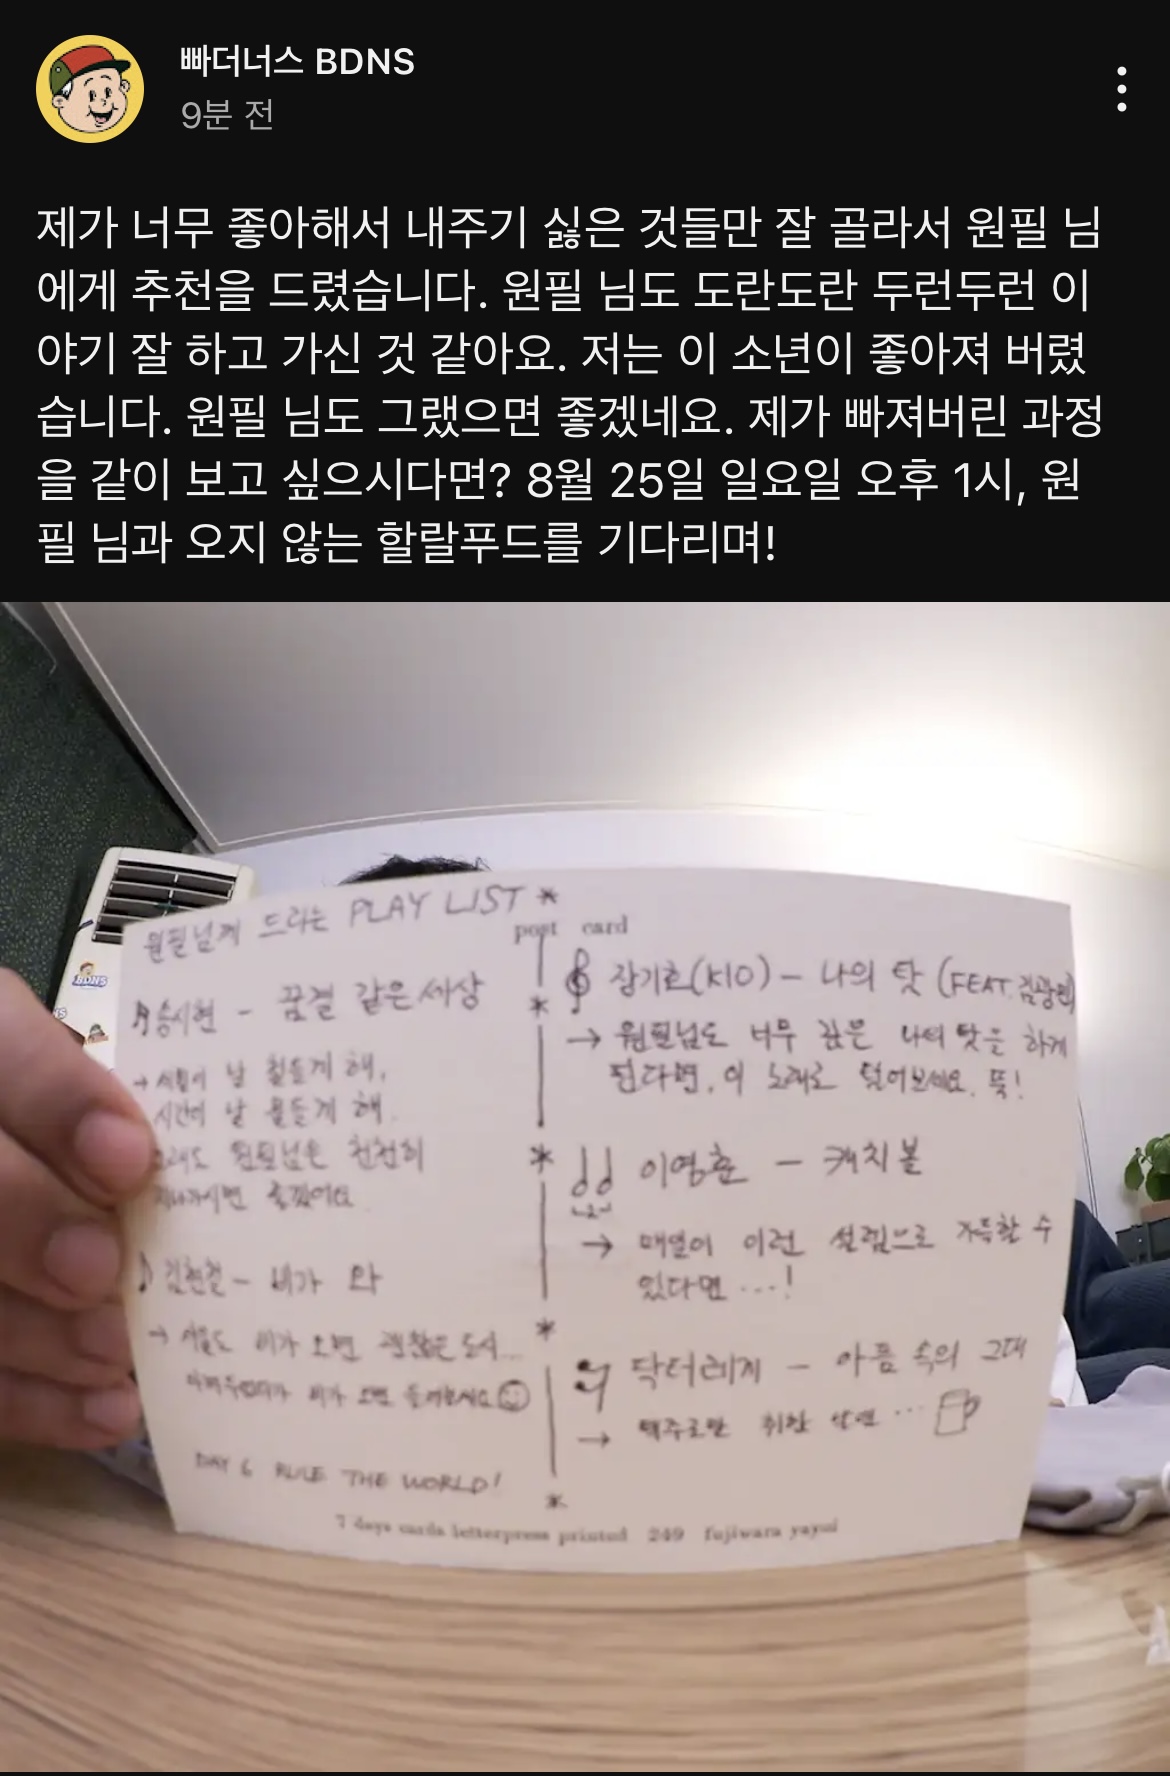 빠더너스 BDNS
9분 전
제가 너무 좋아해서 내주기 싫은 것들만 잘 골라서 원필 님
에게 추천을 드렸습니다. 원필 님도 도란도란 두런두런 이
야기 잘 하고 가신 것 같아요. 저는 이 소년이 좋아져 버렸
습니다. 원필 님도 그랬으면 좋겠네요. 제가 빠져버린 과정
을 같이 보고 싶으시다면? 8월 25일 일요일 오후 1시, 원
필 님과 오지 않는 할랄푸드를 기다리며!
BDNS
원필님께 드리는 PLAY LIST
송시현 - 꿈결 같은 세상
→ 사람이 날 힘들게 해,
시간이 날 물들게 해.
그래도 원필님은 천천히
지나가시면 좋겠어요
김현철 - 비가 와
→ 서울도 비가 오면 괜찮은 도시...
비가 오면 들어보세요
DAY 6 RULE THE WORLD!
post card
장기호(KIO) - 나의 탓 (FEAT. 김광민)
→ 원필님도 너무 깊은 나의 탓을 하게
된다면, 이 노래로 덜어보세요. 뚝!
이영훈 - 캐치볼
→ 매일이 이런 설렘으로 가득할 수
있다면 ...!
닥터레게 - 아픔 속의 그대
→ 맥주로만 취한 날엔 ...
7 days cards letterpress printed 249 fujiwara yayoi